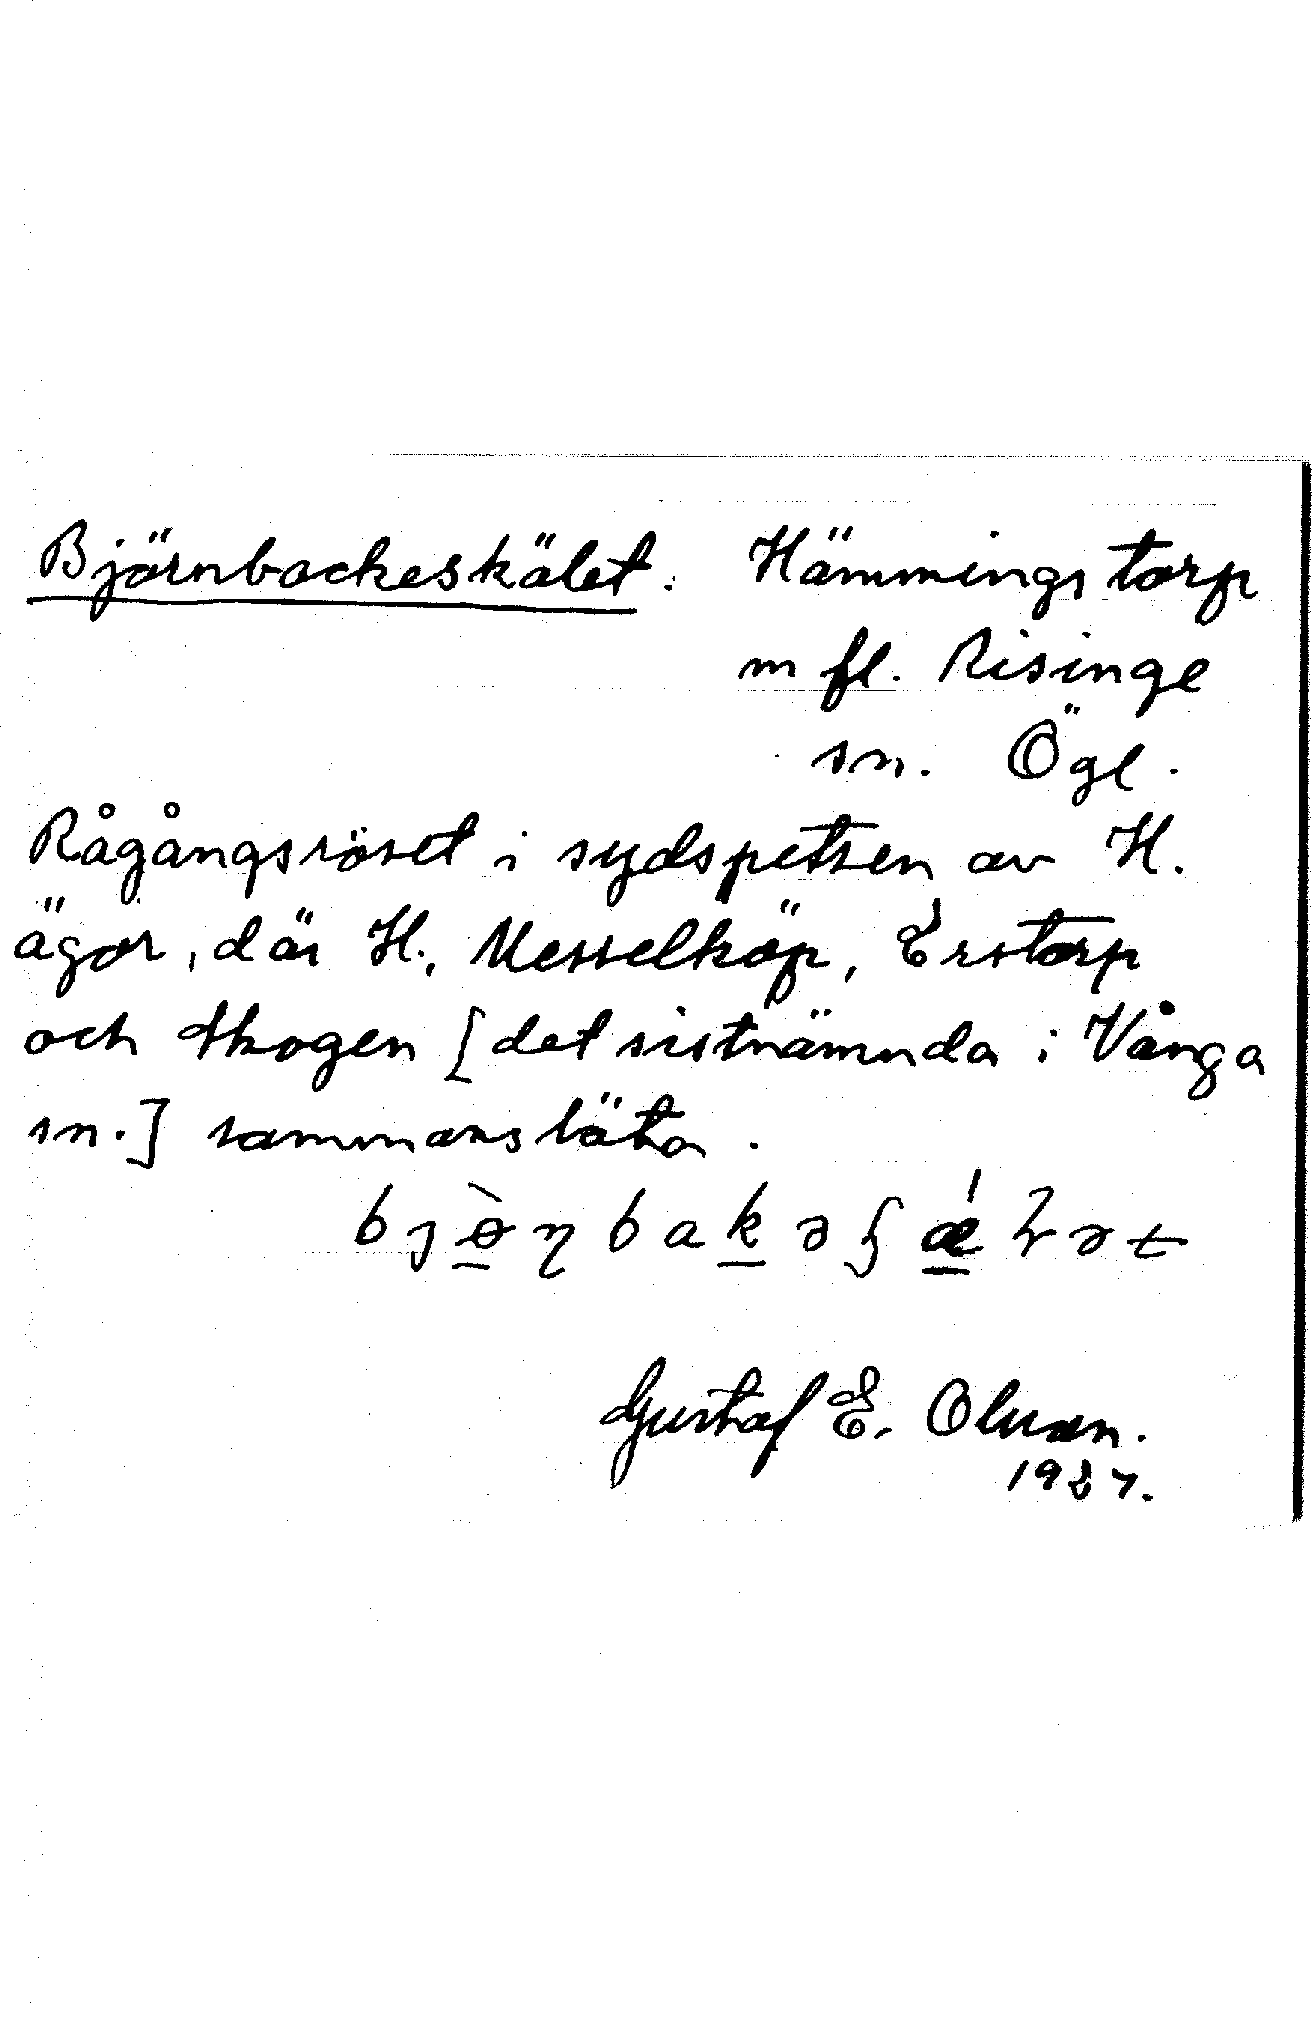 Björnbackeskälet. Hämmingstorp
m fl. Risinge
sn. Ögl.
Rågångsröset i sydspetsen av H.
ägor, där H., Messelköp, Erstorp
och Skogen [det sistnämnda i Vånga
sn.] sammanstöta.
Gustaf E. Olsson.
1937.